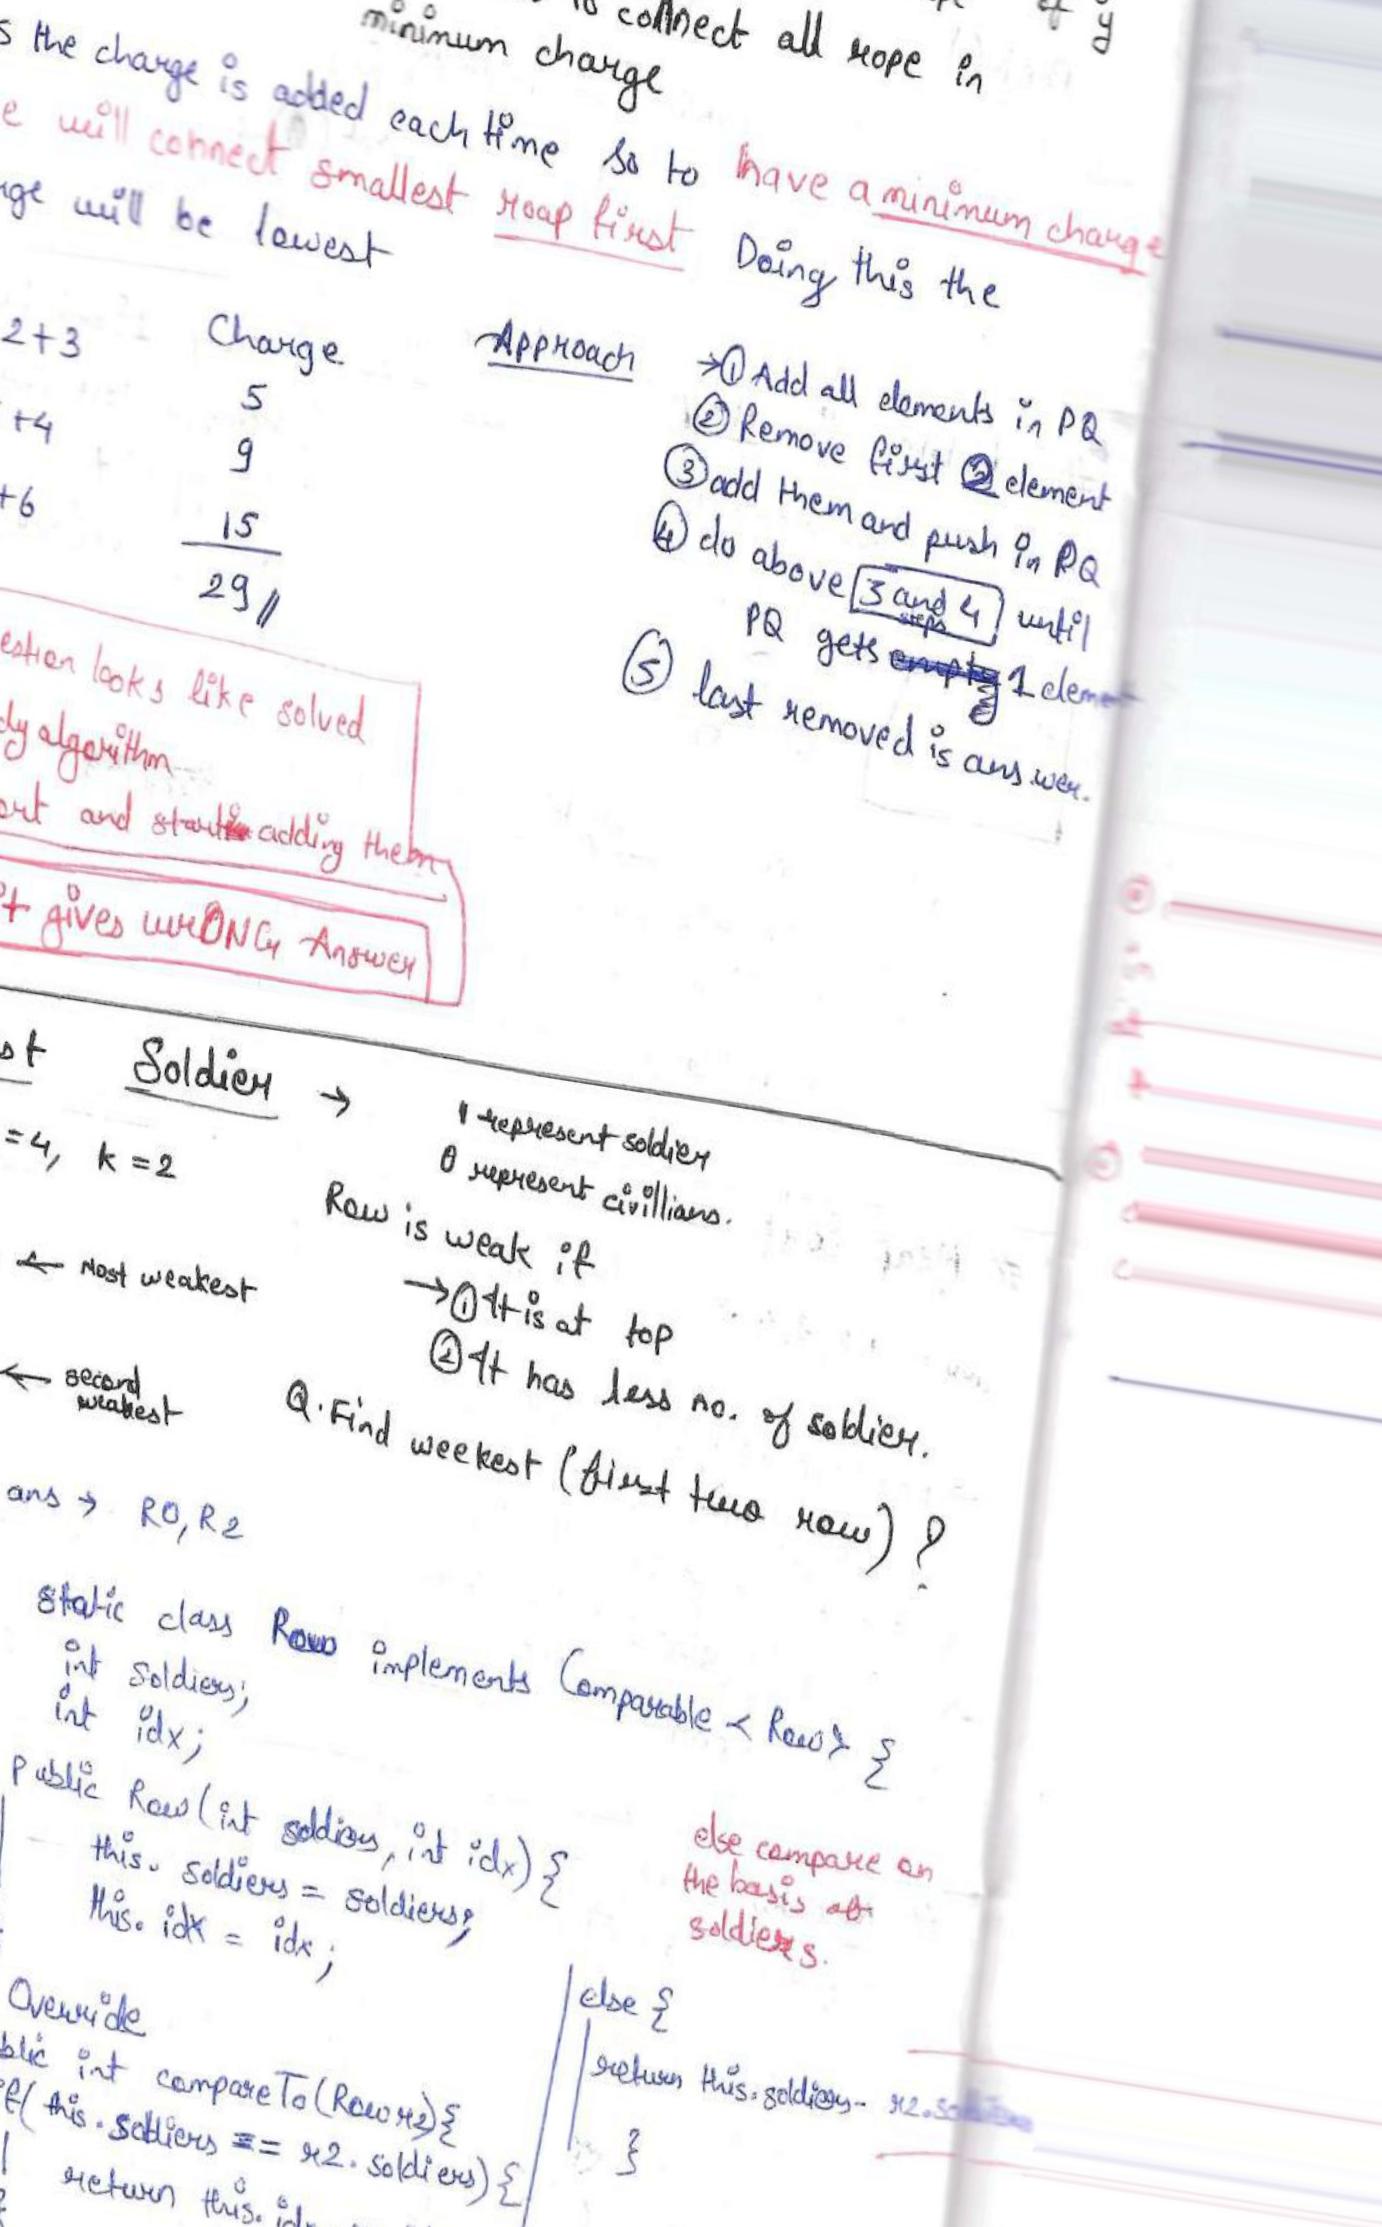 to connect all rope in
minimum charge
s the charge is added each time so to have a minimum charge
e will connect smallest roap first Doing this the
ge will be lowest
2+3 Charge Approach →① Add all elements in PQ
5 ② Remove first 2 element
+4 9 ③ add them and push in PQ
+6 15 ④ do above 3 and 4 steps until
29 PQ gets empty 1 element
⑤ last removed is answer.
estion looks like solved
dy algorithm
ort and start adding them
it gives wrONG Answer
st Soldier → 1 represent soldier
=4, k=2 0 represent civillians.
Row is weak if
← Most weakest →① It is at top
② It has less no. of soldier.
← second weakest Q. Find weekest (first two row) ?
ans → R0, R2
static class Row implements Comparable < Row> {
int soldiers;
int idx;
public Row(int soldiers, int idx) {
this. soldiers = soldiers;
this. idx = idx;
else compare on
the basis of
soldiers.
Override
blic int compareTo(Row r2){
if( this. soldiers == r2. soldiers) {
return this.
else {
return this.soldiers- r2.
}